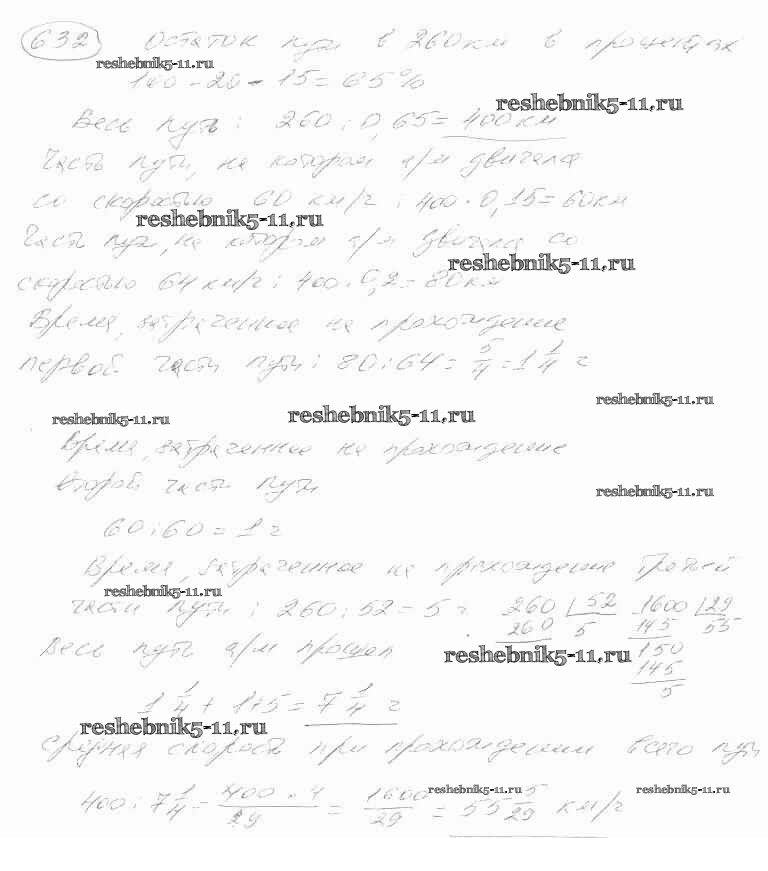 632 Остаток пути в 260 км в процентах
reshebnik5-11.ru
100 - 20 - 15 = 65%
reshebnik5-11.ru
Весь путь: 260 : 0,65 = 400 км
Часть пути, на котором а/м двигала
со скоростью 60 км/г : 400 · 0,15 = 60 км
reshebnik5-11.ru
Часть пути, на котором а/м двигала со
reshebnik5-11.ru
скоростью 64 км/г : 400 · 0,2 = 80 км
Время, затраченное на прохождение
первой части пути : 80 : 64 = 5/4 = 1 1/4 г
reshebnik5-11.ru
reshebnik5-11.ru reshebnik5-11.ru
Время, затраченное на прохождение
второй части пути
reshebnik5-11.ru
60 : 60 = 1 г
Время, затраченное на прохождение третьей
reshebnik5-11.ru
части пути : 260 : 52 = 5 г 260 | 52 1600 | 29
260 5 145 55
Весь путь а/м прошел 150
reshebnik5-11.ru 145
5
1 1/4 + 1 + 5 = 7 1/4 г
reshebnik5-11.ru
Средняя скорость при прохождении всего пути
reshebnik5-11.ru reshebnik5-11.ru
400 : 7 1/4 = 400 · 4/29 = 1600/29 = 55 5/29 км/г